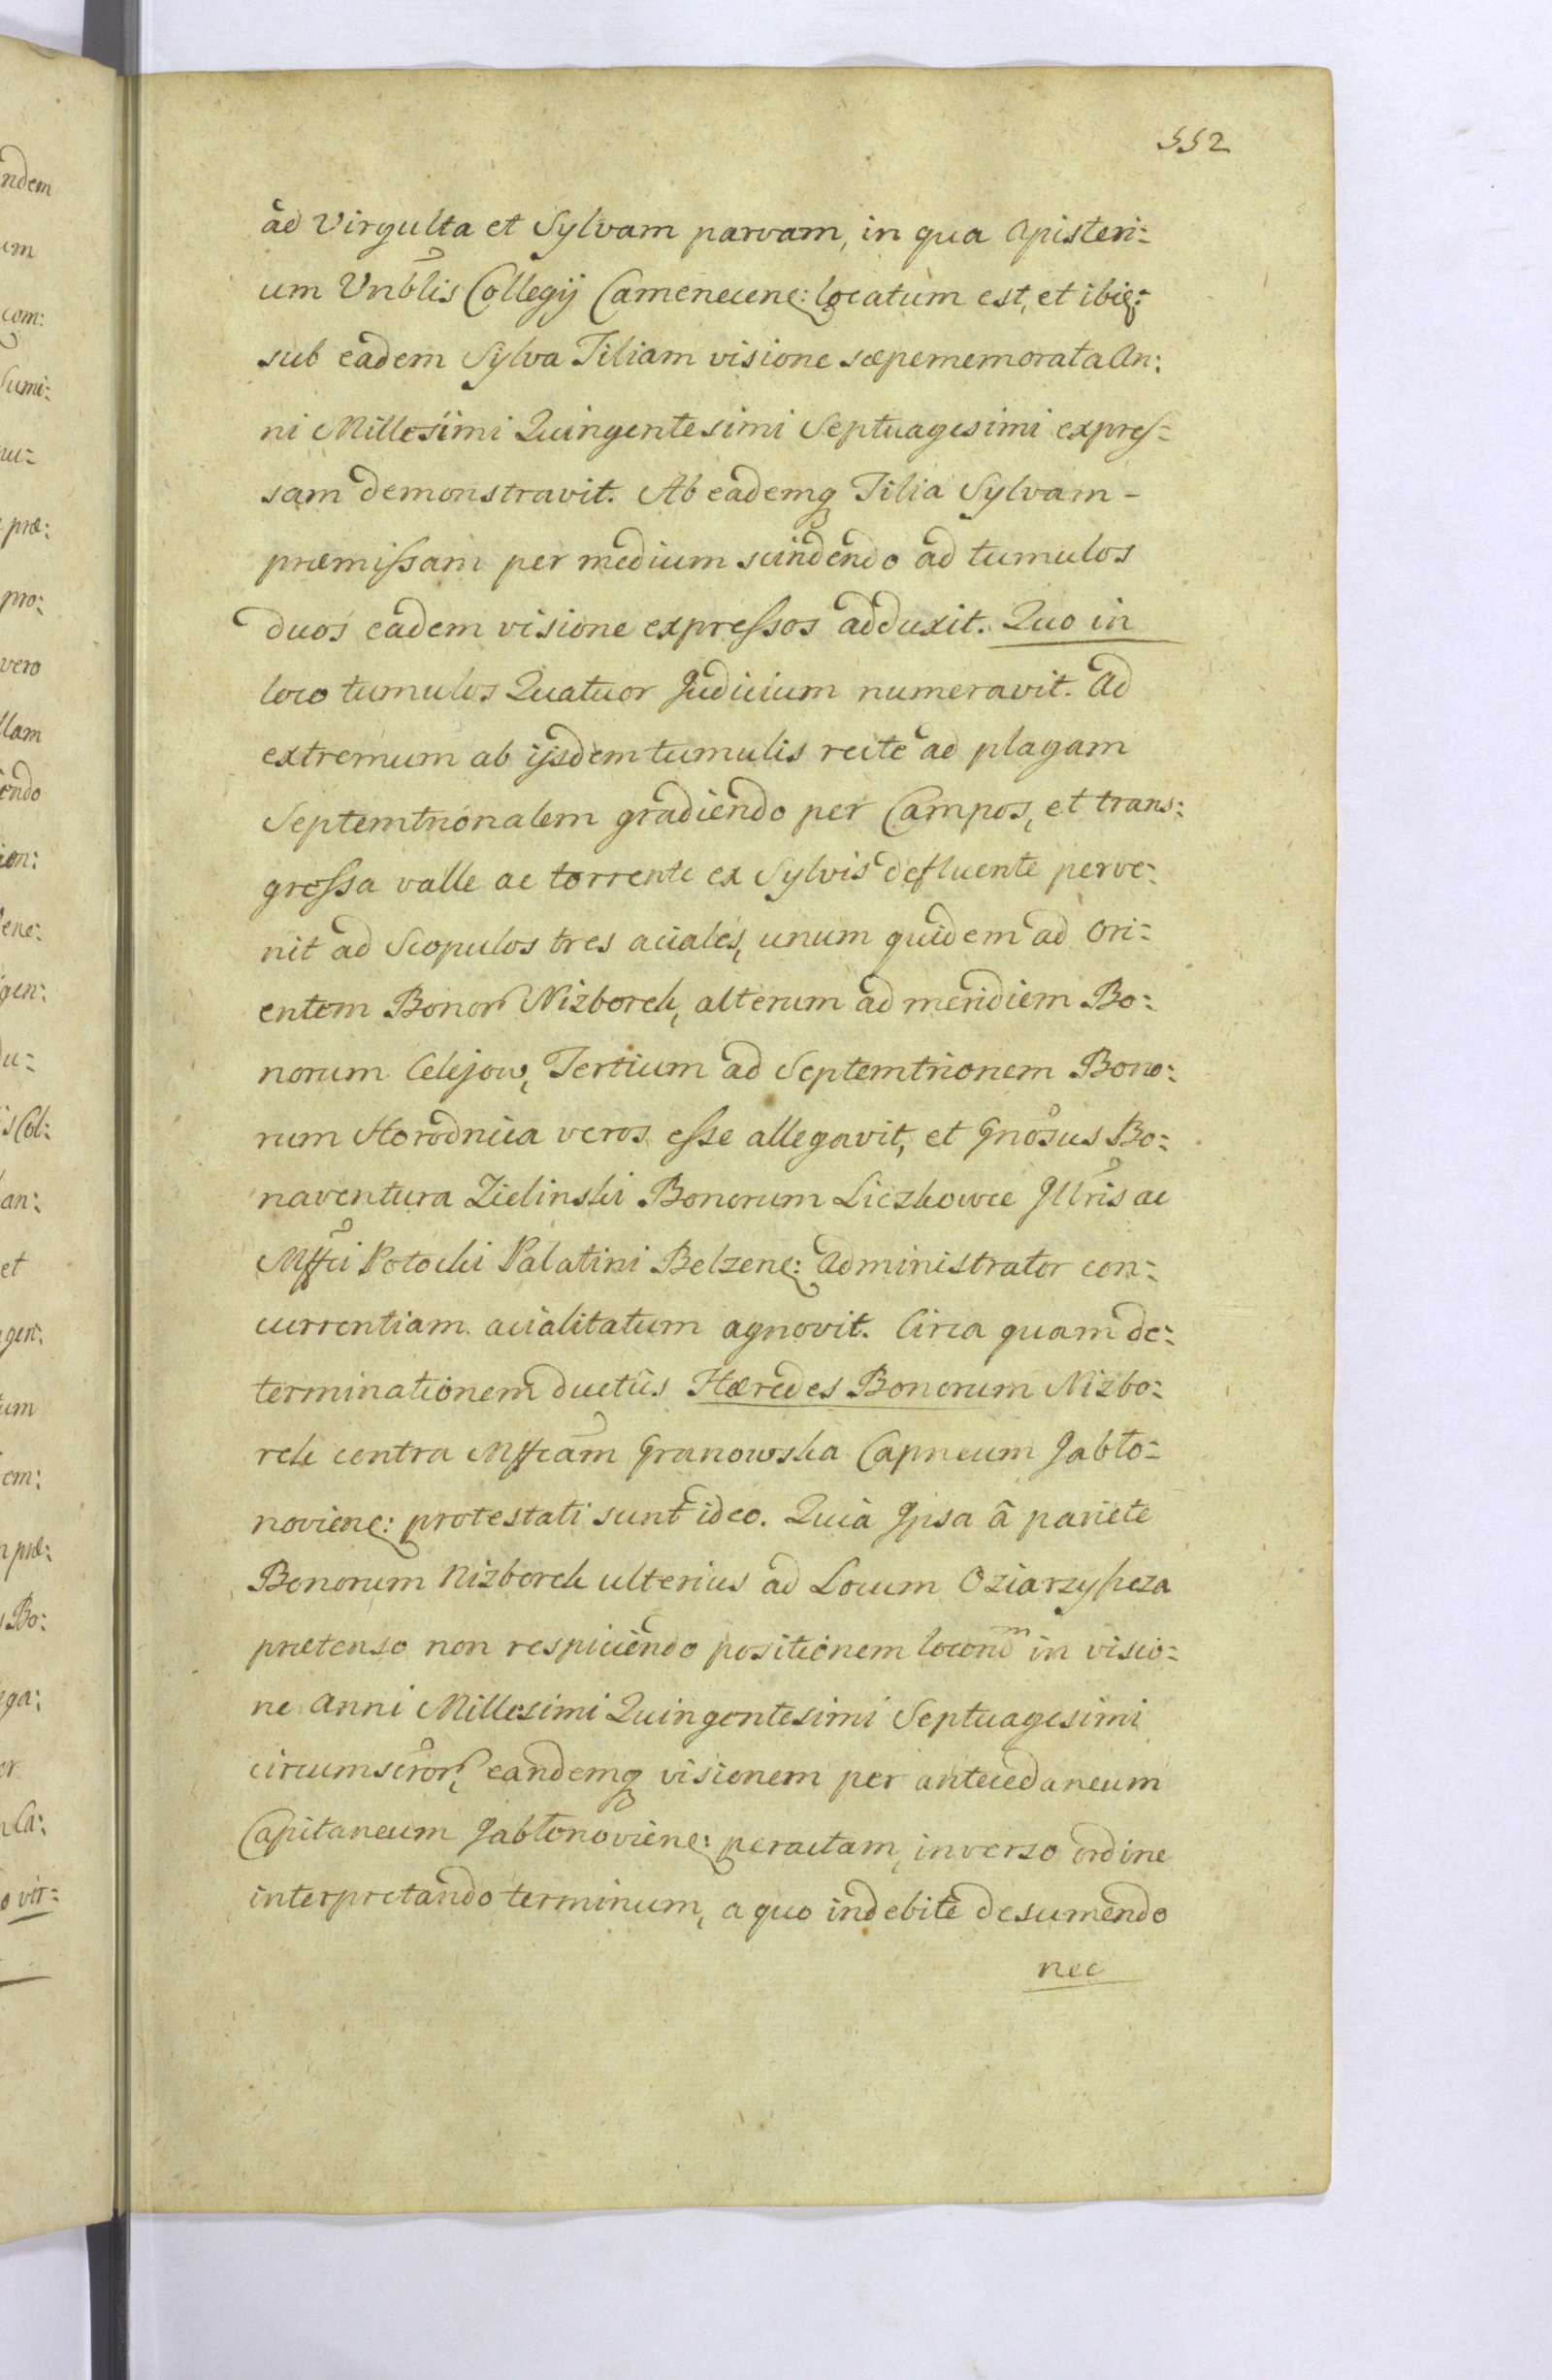 552
ad Virgulta et Sylvam parvam, in qua Apisteri:
um Vnblis Collegij Camenecene: locatum est, et ibiq:
sub eadem Sylva Tiliam visione sæpememorata An:
ni Millesimi Quingentesimi Septuagesimi expres:
sam demonstravit. Ab eademq Tilia Sylvam -
præmissam per medium scindendo ad tumulos
duos eadem visione expressos adduxit. Quo in
loco tumulos Quatuor Judicium numeravit. Ad
extremum ab ijsdem tumulis recte ad plagam
Septemtrionalem gradiendo per Campos, et trans:
gressa valle ac torrente ex Sylvis defluente perve:
nit ad Scopulos tres aciales, unum quidem ad Ori:
entem Bonor Nizborek, alterum ad meridiem Bo:
norum Celejow, Tertium ad Septemtrionem Bono:
rum Horodnica veros esse allegavit, et Gnosus Bo:
naventura Zielinski Bonorum Liczkowce Jllris ac
Mffci Potocki Palatini Belzene: Administrator con:
currentiam acialitatum agnovit. Circa quam de:
terminationem ductus Hæredes Bonorum Nizbo:
rek contra Mffcam Granowska Capneum Jabło:
noviene: protestati sunt ideo. Quia Jpsa â pariete
Bonorum Nizborek ulterius ad Locum Oziarzyszcza
prætenso non respiciendo positionem locorum in visio:
ne Anni Millesimi Quingentesimi Septuagesimi
circumscror, eandemq visionem per antecedaneum
Capitaneum Jabłonoviene: peractam, inverso ordine
interpretando terminum, a quo indebite desumendo
nec